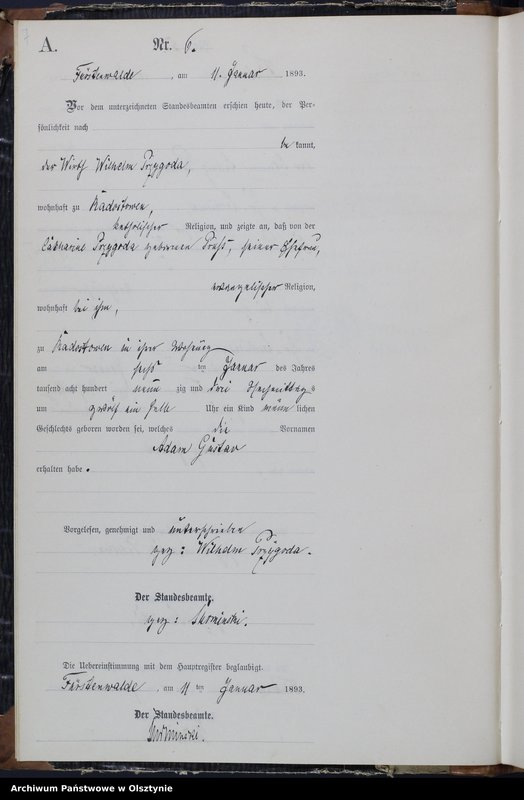 7
A.
Nr. 6.
Fürstenwalde, am 11. Januar 1893.
Vor dem unterzeichneten Standesbeamten erschien heute, der Per-
sönlichkeit nach
be kannt,
der Wirth Wilhelm Przygoda,
wohnhaft zu Radostowen,
katholischer Religion, und zeigte an, daß von der
Catharine Przygoda geborenen seiner Ehefrau,
evangelischer Religion,
wohnhaft bei ihm,
zu Radostowen in ihrer Wohnung
am sechs ten Januar des Jahres
tausend acht hundert neun zig und drei Nachmittags
um zwölf ein halb Uhr ein Kind männ lichen
Geschlechts geboren worden sei, welches die Vornamen
Adam Gustav
erhalten habe.
Vorgelesen, genehmigt und unterschrieben
gez: Wilhelm Przygoda.
Der Standesbeamte.
gez:
Die Uebereinstimmung mit dem Hauptregister beglaubigt.
Fürstenwalde, am 11 ten Januar 1893.
Der Standesbeamte.
Archiwum Państwowe w Olsztynie